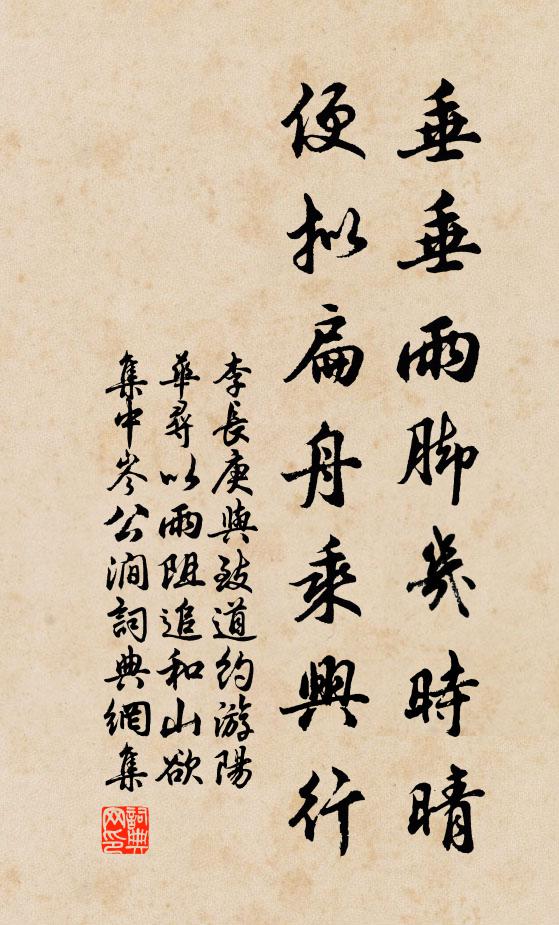 垂垂雨脚幾時晴
便拟扁舟乘興行
李長庚與致道約游陽
華尋以雨阻追和山欲
集中岑公澗詞典網集
詞典
网印